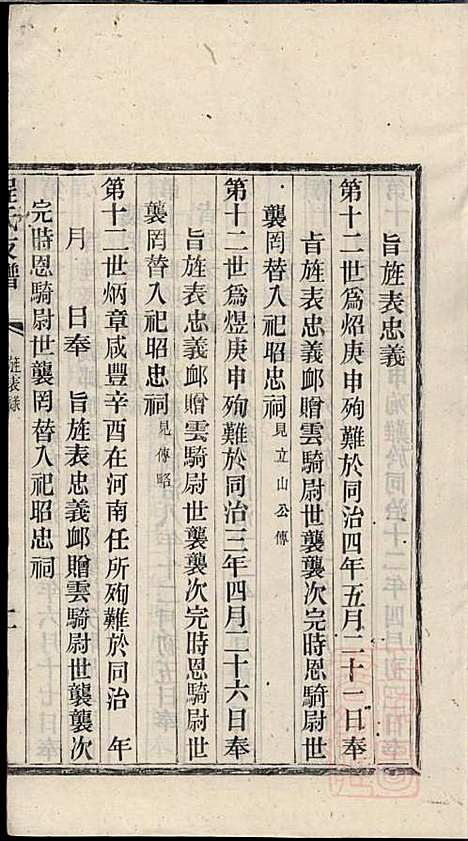 旨旌表忠義
第十二世爲炤庚申殉難於同治四年五月二十一日奉
旨旌表忠義卹贈雲騎尉世襲襲次完時恩騎尉世
襲罔替入祀昭忠祠見立山公傳
第十二世爲煜庚申殉難於同治三年四月二十六日奉
旨旌表忠義卹贈雲騎尉世襲襲次完時恩騎尉世
襲罔替入祀昭忠祠見傳略
第十二世炳章咸豐辛酉在河南任所殉難於同治 年
月 日奉 旨旌表忠義卹贈雲騎尉世襲襲次
完時恩騎尉世襲罔替入祀昭忠祠
程氏支譜 旌表錄